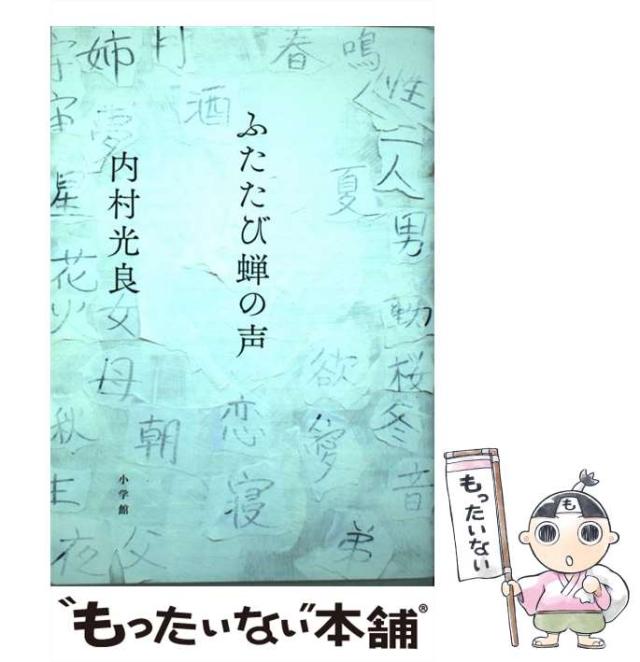 ふたたび蝉の声
内村光良
小学館
姉
月
春
鳴
宇
宙
夢
酒
性
人
夏
男
星
花
火
女
母
動
桜
欲
冬
秋
朝
恋
愛
音
生
寝
夜
父
弟
"もったいない"本舗®
もったいない
も